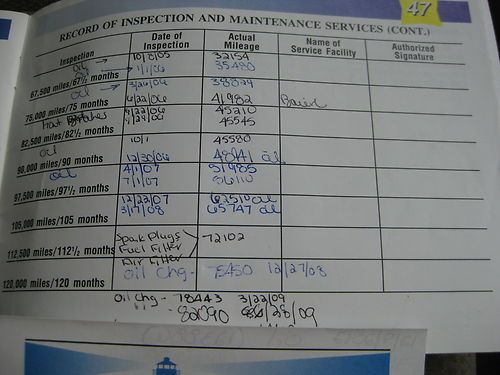 47
RECORD OF INSPECTION AND MAINTENANCE SERVICES (CONT.)
Inspection Date of Inspection Actual Mileage Name of Service Facility Authorized Signature
10/3/05 32154
oil → 1/1/06 35480
67,500 miles/67½ months
oil → 3/26/06 38024
75,000 miles/75 months 6/22/06 41982
45210
45545
82,500 miles/82½ months
oil 10/1 45580
90,000 miles/90 months 12/30/06 48141 oil
oil 4/1/07 51985
97,500 miles/97½ months 7/1/07 56110
12/22/07 62510 oil
105,000 miles/105 months 3/17/08 65747 oil
Spark Plugs
Fuel Filter 72102
112,500 miles/112½ months Air Filter
Oil Chg - 75450 12/27/08
120,000 miles/120 months
Oil Chg - 78443 3/22/09
" - 82090 6/28/09